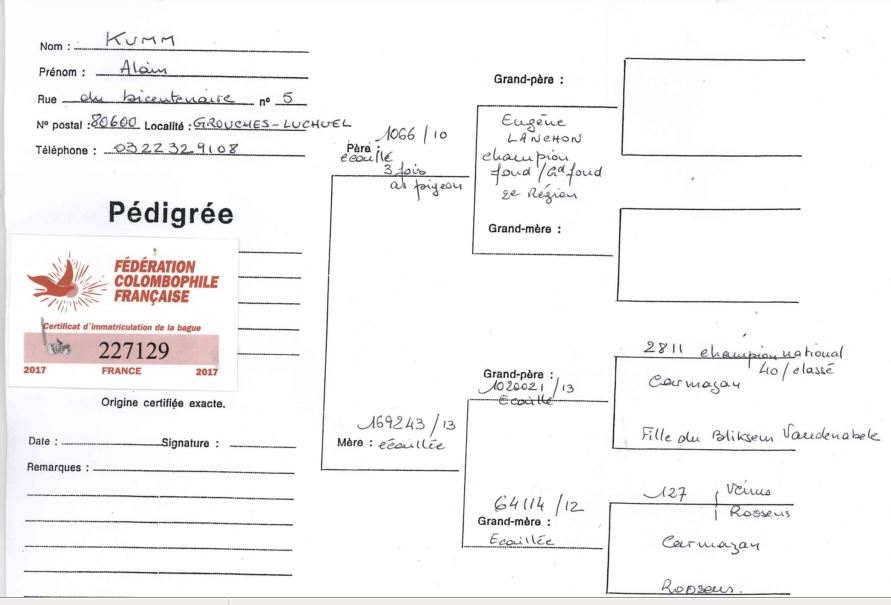 Nom : KUMM
Prénom : Alain
Rue du bicentenaire n° 5
N° postal : 80600 Localité : GROUCHES-LUCHUEL
Téléphone : 0322329108
Pédigrée
FÉDÉRATION
COLOMBOPHILE
FRANÇAISE
Certificat d'immatriculation de la bague
227129
2017 FRANCE 2017
Origine certifiée exacte.
Date : Signature :
Remarques :
1066 / 10
Père :
écaillé
3 fois
as pigeon
Grand-père :
Eugène
LANCHON
champion
fond / Gd fond
2e Région
Grand-mère :
169243 / 13
Mère : écaillée
Grand-père :
1020021 / 13
Ecaillé
64114 / 12
Grand-mère :
Ecaillée
2811 champion national
40 / classé
Carmazan
Fille du Bliksem Vandenabele
127 Vénus
Roosens
Carmazan
Roosens.